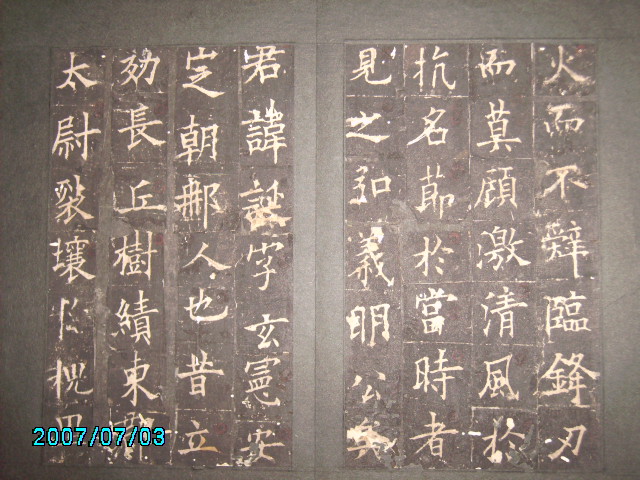 火而不辭臨鋒刃
而莫顧激清風於
抗名節於當時者
見之弘義明公矣
君諱誕字玄憲安
定朝那人也昔立
効長丘樹績東郡
太尉裂壤於槐里
2007/07/03